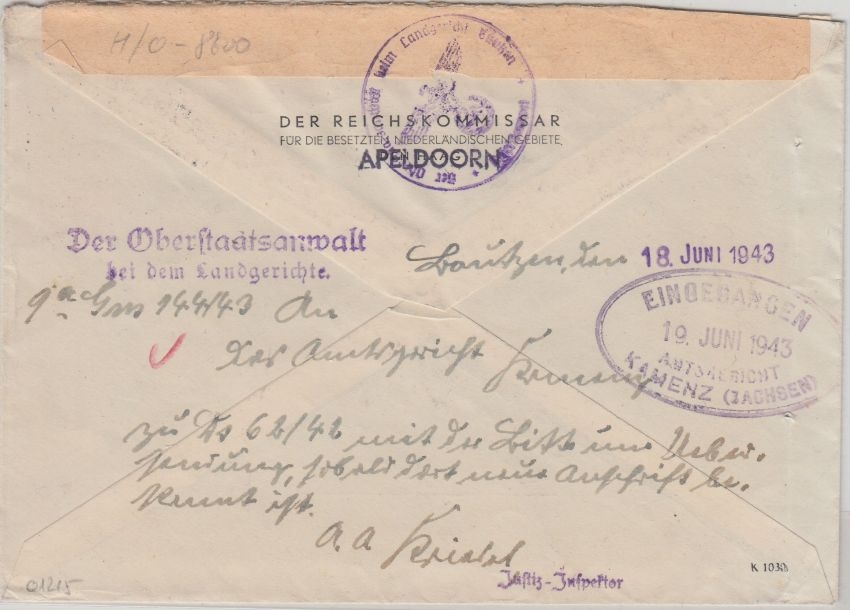 H/O - 8800
beim Landgericht Bautzen
DER REICHSKOMMISSAR
FÜR DIE BESETZTEN NIEDERLÄNDISCHEN GEBIETE
DEN HAAG
APELDOORN
Der Oberstaatsanwalt
bei dem Landgerichte.
Bautzen, den 18. JUNI 1943
144/43 An
das Amtsgericht
Kamenz
EINGEGANGEN
19. JUNI 1943
AMTSGERICHT
KAMENZ (SACHSEN)
zu Ds 62/42 mit der Bitte um Ueber-
sendung, sobald dort neue Anschrift be-
kannt ist.
A. A.
Justiz-Inspektor
K 1030
01215